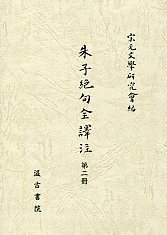 宋元文學研究會編
朱子絶句全譯注
第二冊
汲古書院